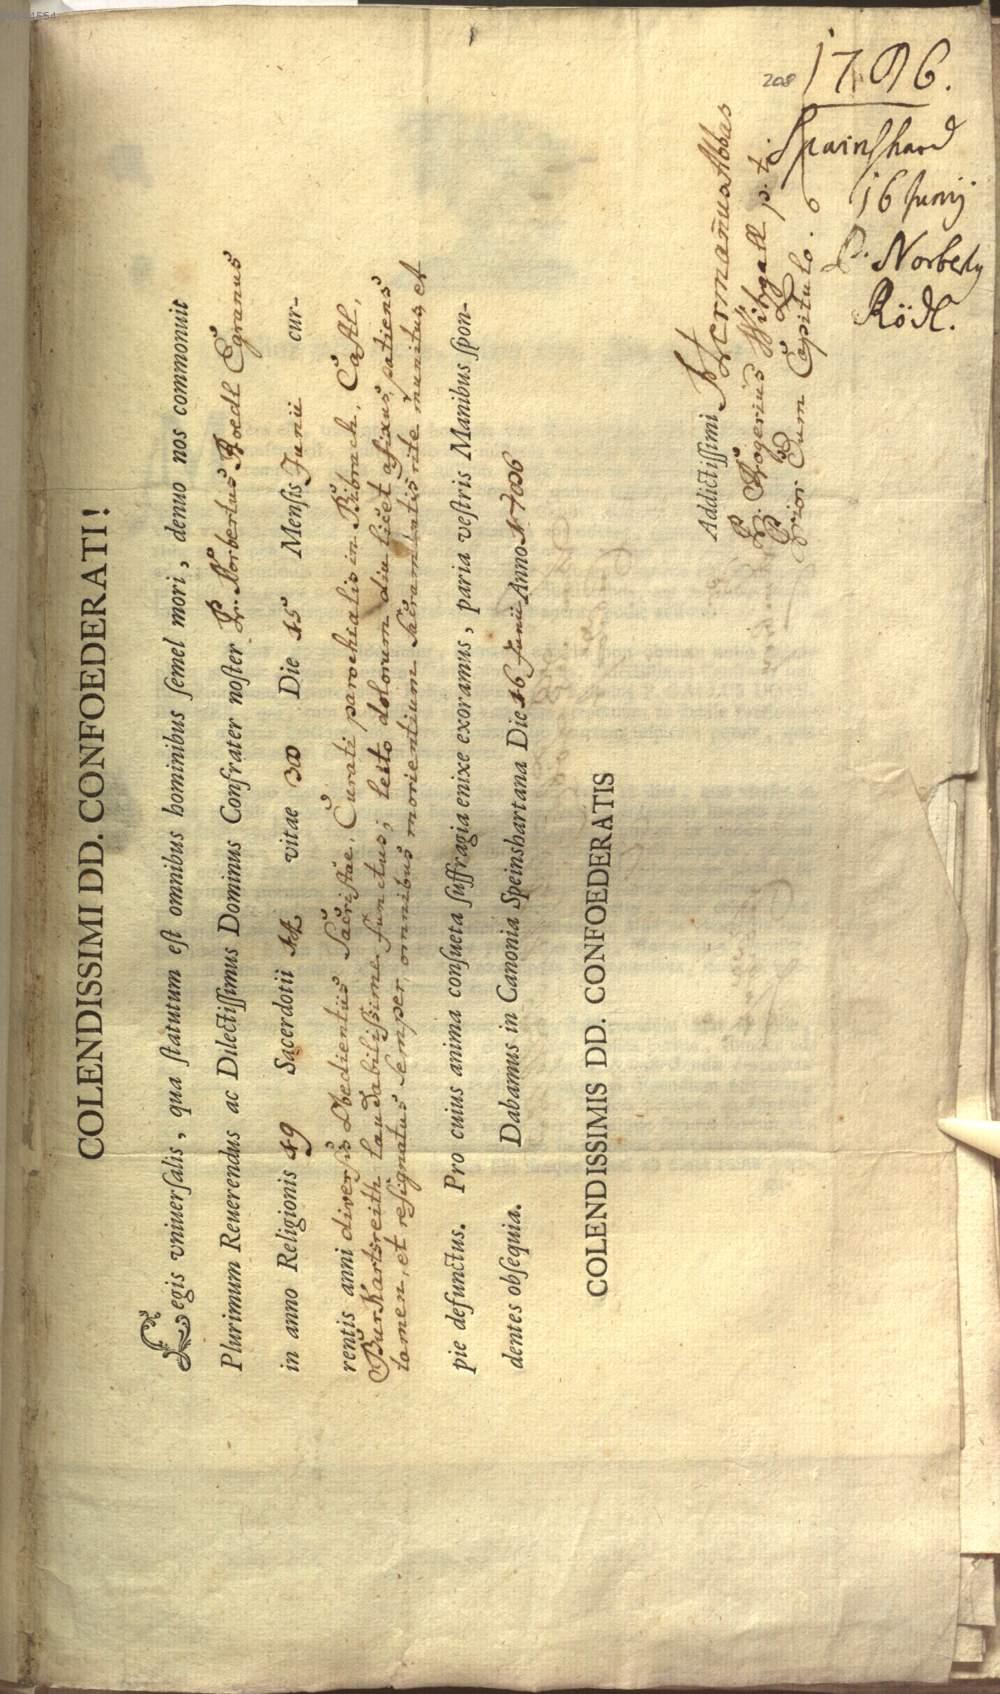 COLENDISSIMI DD. CONFOEDERATI!
Legis vniuerſalis, qua ſtatutum eſt omnibus hominibus ſemel mori, denuo nos commonuit
Plurimum Reuerendus ac Dilectiſſimus Dominus Confrater noſter P. Norbertus Roedl Egranus
in anno Religionis 49 Sacerdotii 44 vitae Die 15 Menſis Junii cur-
rentis anni diversis Obedientiis Sacristae, Curati parochialis in Bibrach, Castl,
Burkartsreith laudabilissime functus; lecto dolorum diu licet afixus, patiens
tamen, et resignatus semper, omnibus morientium Sacramentis rite munitus et
pie defunctus. Pro cuius anima conſueta ſuffragia enixe exoramus, paria veſtris Manibus ſpon-
dentes obſequia. Dabamus in Canonia Speinshartana Die 16 Junii Anno 1706
COLENDISSIMIS DD. CONFOEDERATIS
Addictiſſimi Hermanus Abbas
P. Rogerius Wibgall p. t.
Prior Cum Capitulo.
208
1706.
Spainshard
16 Junij
P. Norberty
Rödl.